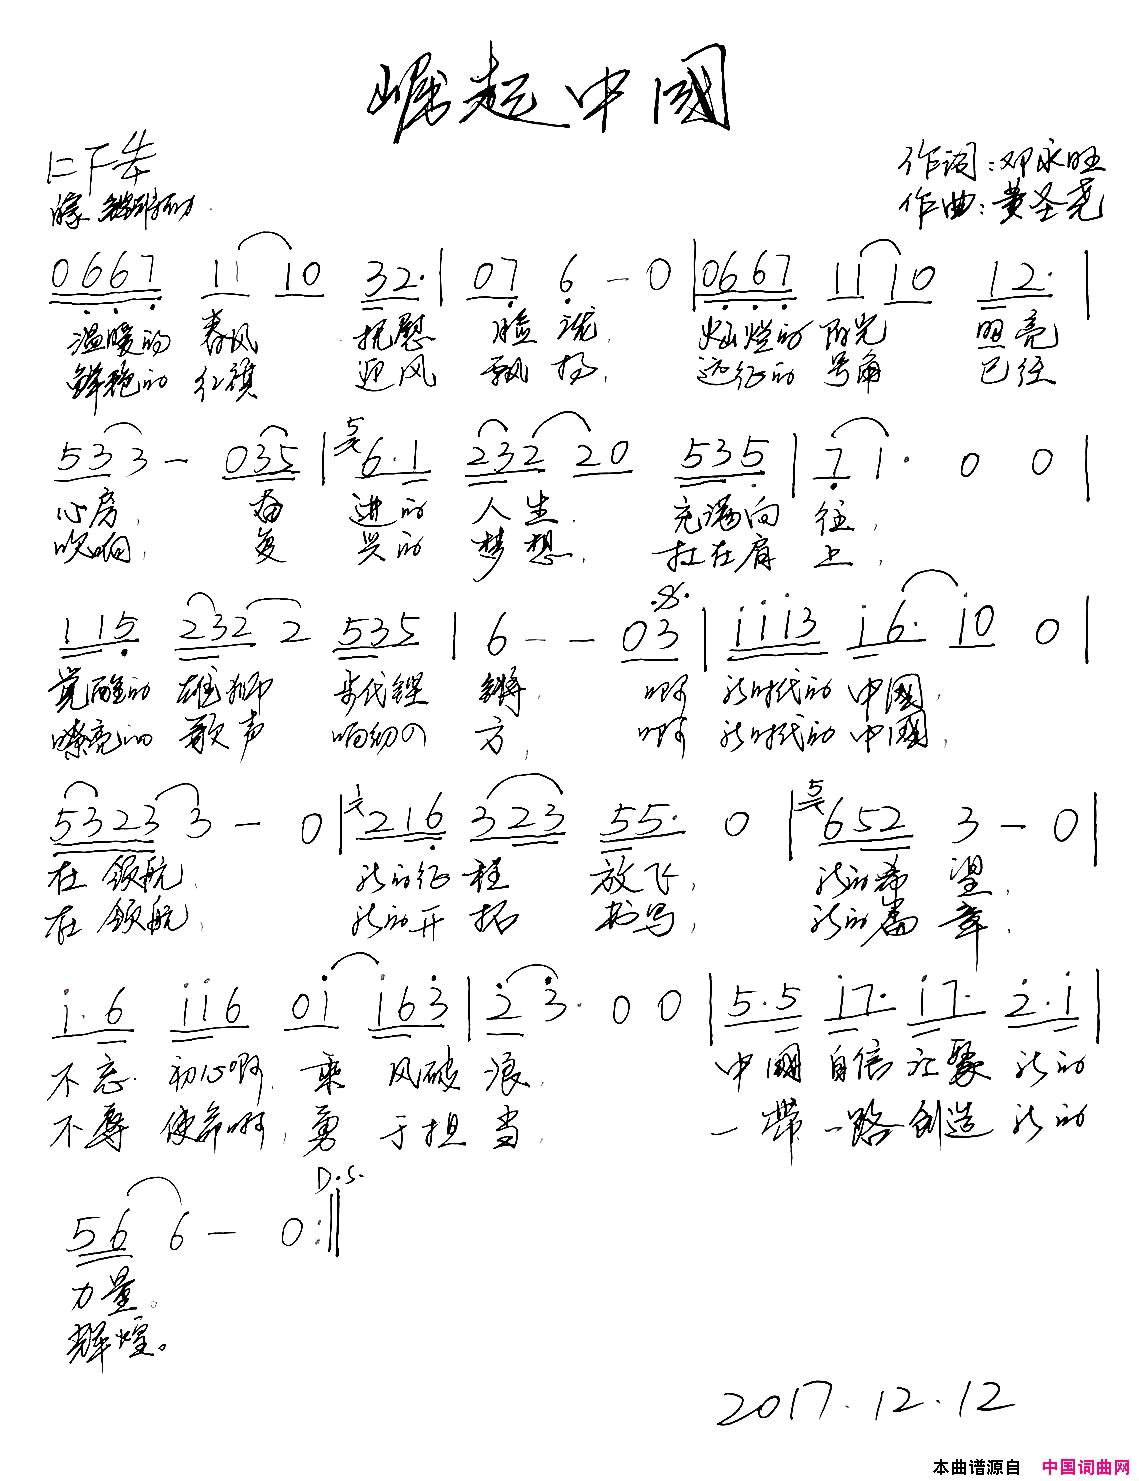 崛起中國
1=F 4/4
作词:邓永旺
作曲:黄圣尧
0667 11 10 32. | 07 6 - 0 | 0667 11 10 12. |
温暖的 春风 抚慰 脸 灿烂的 阳光 照亮
鲜艳的 红旗 迎风 飘扬, 远征的 号角 已经
533 - 035 | 6.1 232 20 535 | 71. 0 0 |
心房, 奋 进的 人生. 充满向 往,
吹响, 复 兴的 梦想, 扛在肩 上,
115 232 2 535 | 6 - - 03 | 1113 16. 10 0 |
觉醒的 雄狮 步伐铿 锵. 啊 新时代的 中國,
嘹亮的 歌声 响彻 方, 啊 新时代的 中國,
5323 3 - 0 | 216 323 55. 0 | 652 3 - 0 |
在 领航, 新的征程 放飞, 新的希 望,
在 领航, 新的开拓 书写, 新的篇 章,
1.6 116 01 163 | 23. 0 0 | 5.5 17. 17. 2.1 |
不忘 初心啊, 乘 风破 浪, 中國 自信 汇聚 新的
不辱 使命啊, 勇 于担 当, 一带 一路 创造 新的
D.S.
56 6 - 0 :||
力量。
辉煌。
2017.12.12
本曲谱源自 中国词曲网